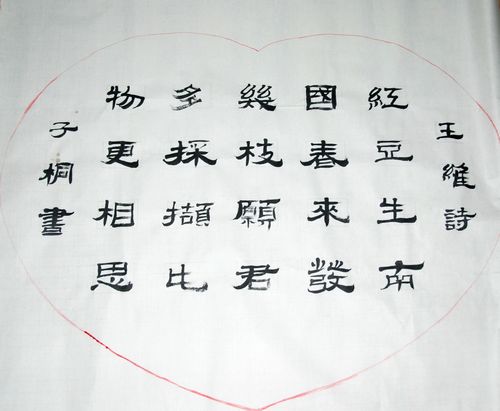 王維詩
紅豆生南
國春來發
幾枝願君
多採擷比
物更相思
子桐書